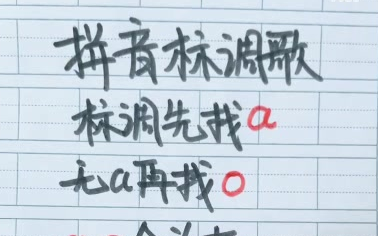 拼音标调歌
标调先找a
无a再找o